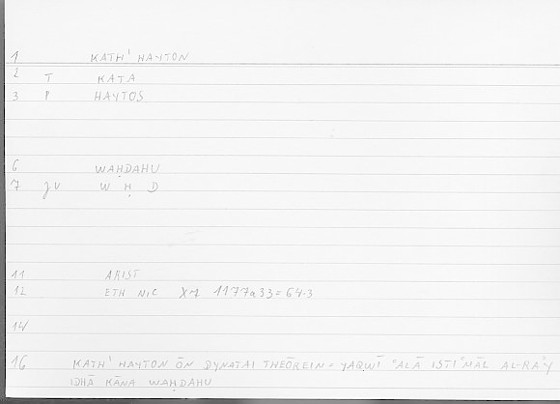 1 KATH' HAYTON
2 T KATA
3 P HAYTOS
6 WAḤDAHU
7 gv W Ḥ D
11 ARIST
12 ETH NIC X7 1177a33 = 64.3
14
16 KATH' HAYTON ŌN DYNATAI THEŌREIN = YAQWĪ ʿALĀ ISTIʿMĀL AL-RAʾY
IDHĀ KĀNA WAḤDAHU